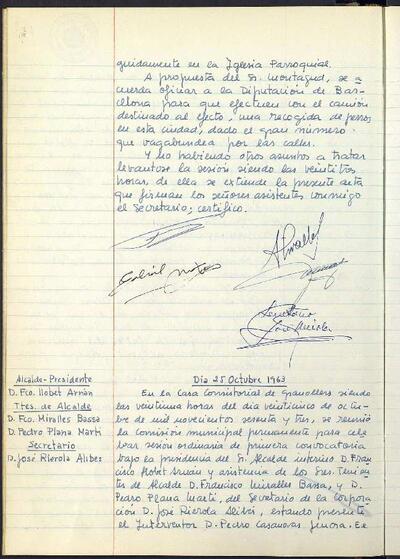 guidamente en la Iglesia Parroquial.
A propuesta del Sr. Montagud, se a-
cuerda oficiar a la Diputación de Bar-
celona para que efectuen con el camión
destinado al efecto, una recogida de perros
en esta ciudad, dado el gran número
que vagabundea por las calles.
Y no habiendo otros asuntos a tratar
levantose la sesión siendo las veintitrés
horas, de ella se extiende la presente acta
que firman los señores asistentes conmigo
el Secretario; certifico.
Gabriel
Miralles
Secretario
José Rierola
Alcalde-Presidente
D. Fco. Llobet Arnán
Ttes. de Alcalde
D. Fco. Miralles Bassa
D. Pedro Plana Martí
Secretario
D. José Rierola Alibés
Dia 25 Octubre 1963
En la Casa Consistorial de Granollers siendo
las veintiuna horas del dia veinticinco de octu-
bre de mil novecientos sesenta y tres, se reunió
la Comisión municipal permanente para cele
brar sesión ordinaria de primera convocatoria
bajo la presidencia del Sr. Alcalde interino D. Fran
cisco Llobet Arnan y asistencia de los Sres. Tenien
tes de Alcalde D. Francisco Miralles Bassa, y D.
Pedro Plana Martí, del Secretario de la Corpora
ción D. José Rierola Alibés, estando presente
el Interventor D. Pedro Casanovas